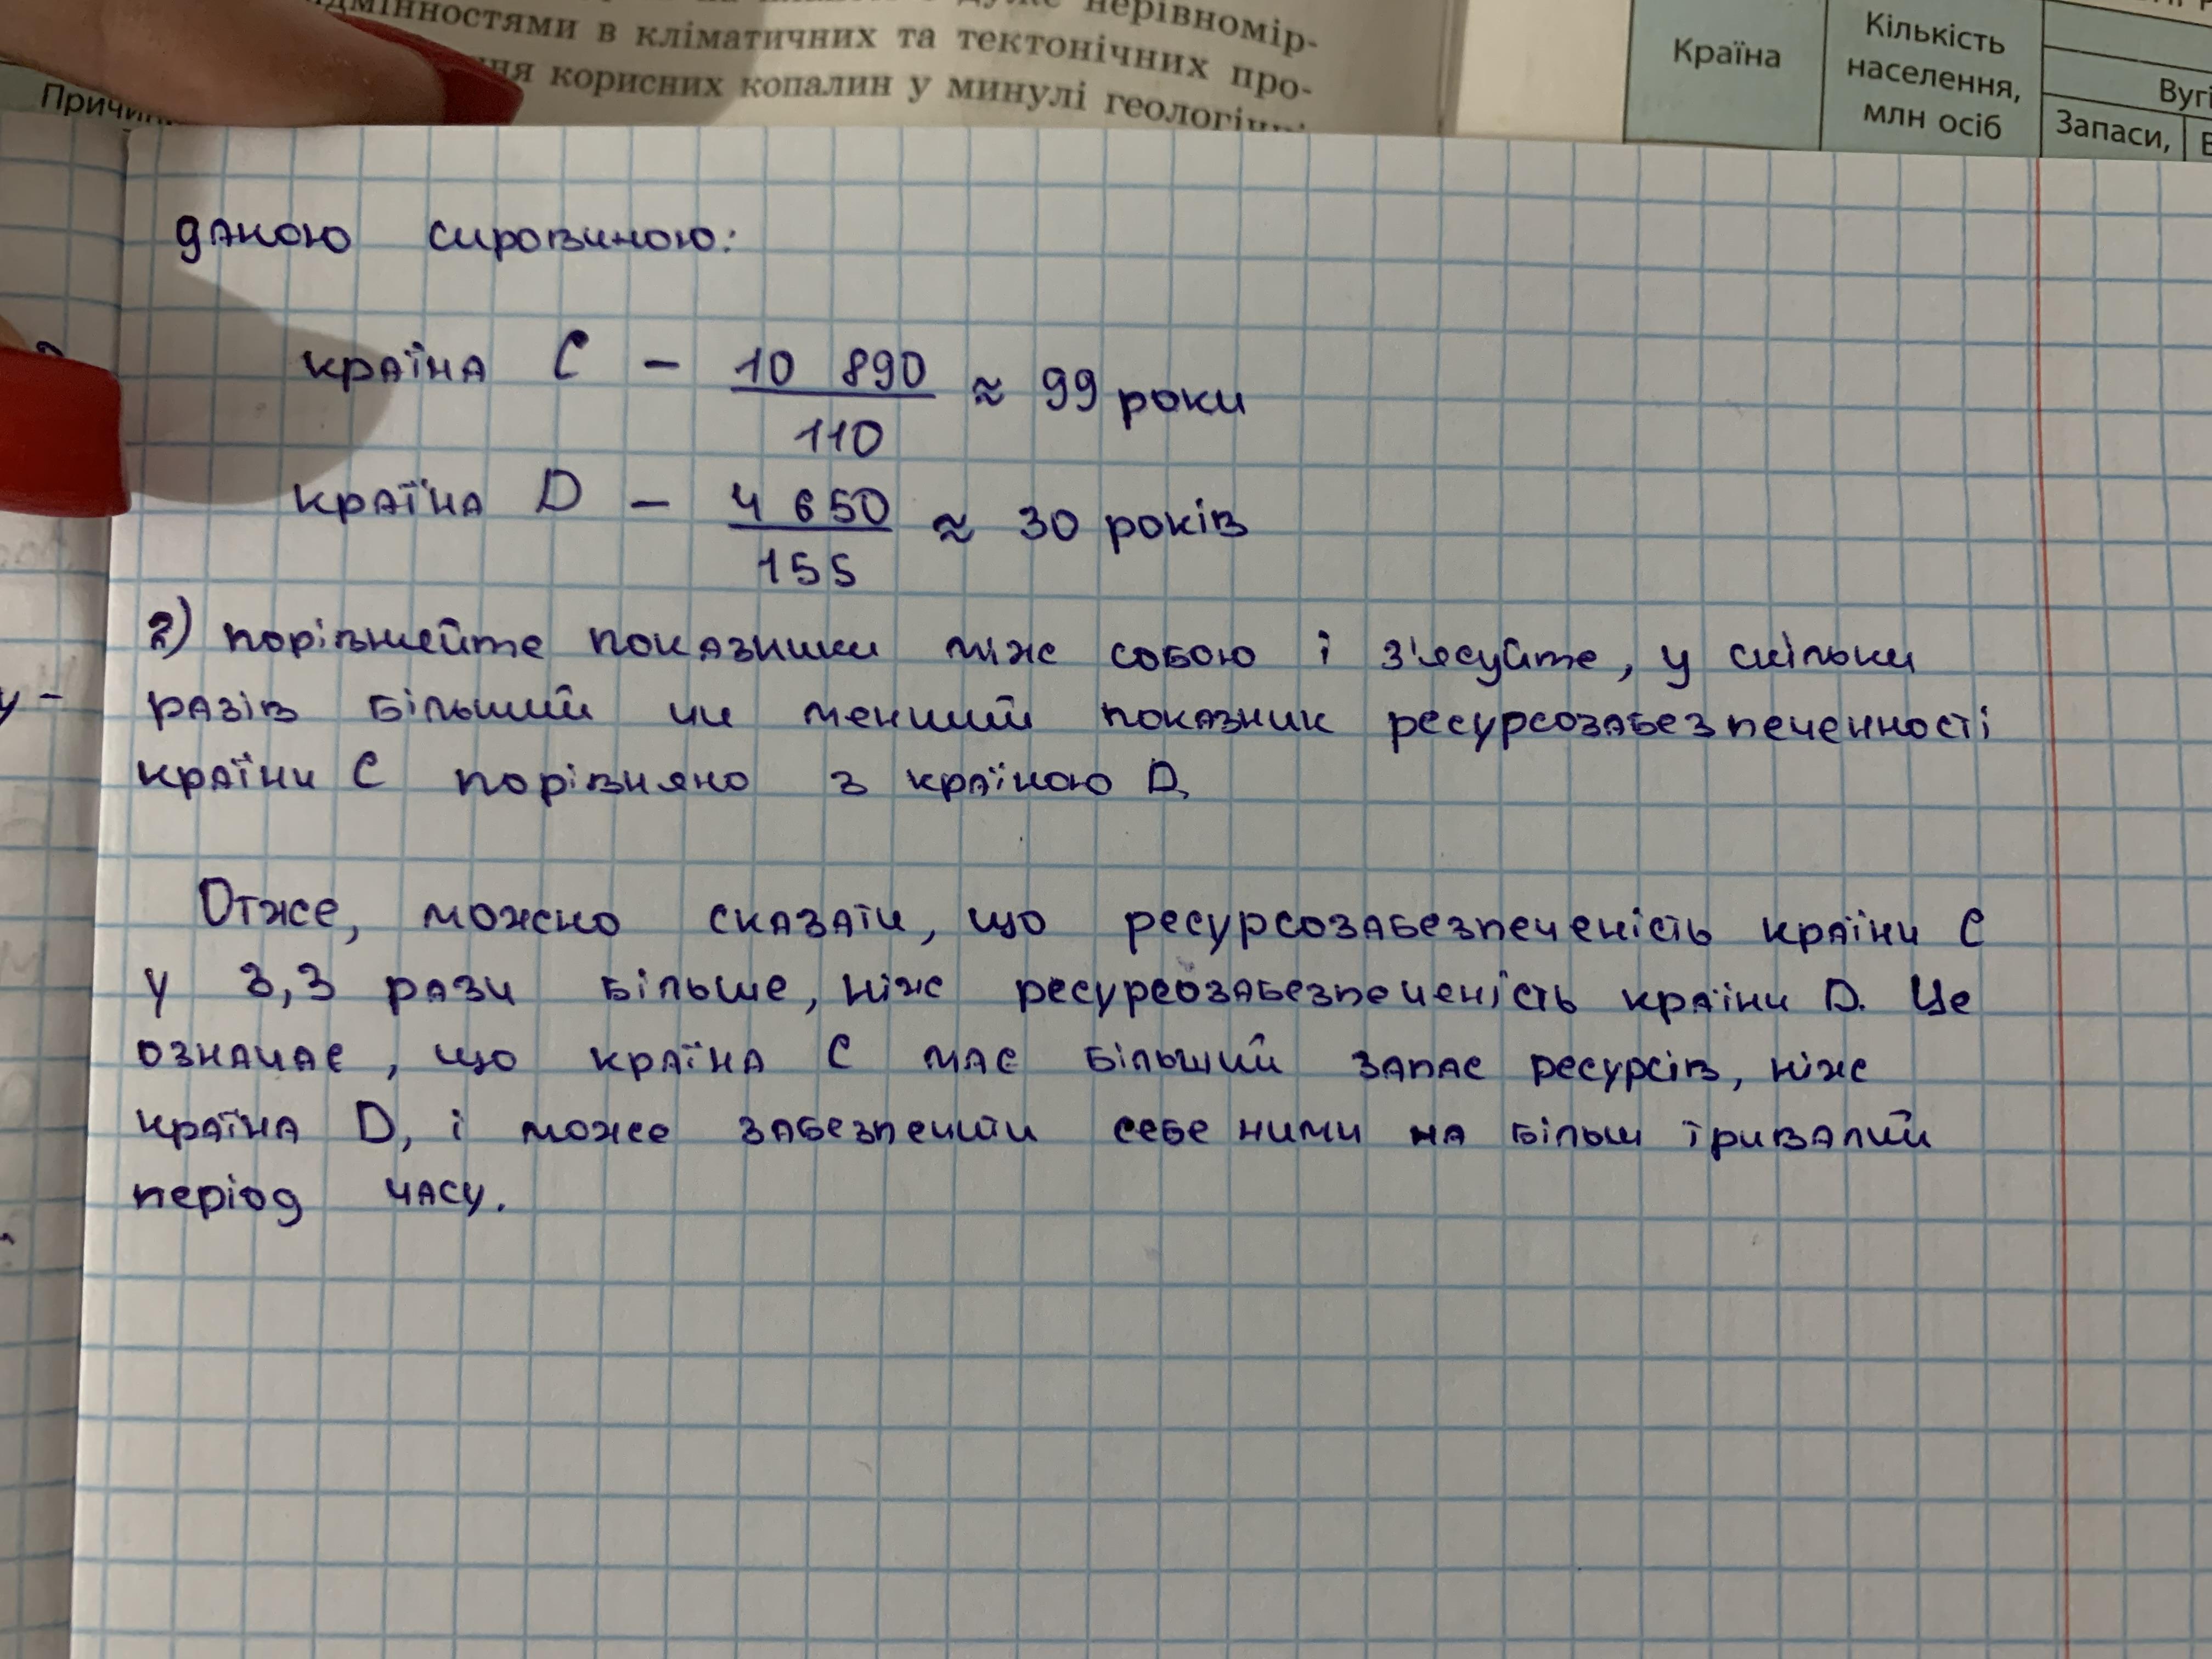 нерівномір-
дмінностями в кліматичних та тектонічних про-
ня корисних копалин у минулі геологічні
Країна
Кількість
населення,
млн осіб
Вугі
Запаси,
Причин
даною сировиною:
країна С – 10 890 ≈ 99 роки
110
країна D – 4 650 ≈ 30 років
155
2) порівняйте показники між собою і з'ясуйте, у скільки
разів більший чи менший показник ресурсозабезпеченності
країни С порівняно з країною D.
Отже, можно сказати, що ресурсозабезпеченість країни С
у 3,3 рази більше, ніж ресурсозабезпеченість країни D. Це
означає, що країна С має більший запас ресурсів, ніж
країна D, і може забезпечити себе ними на більш тривалий
період часу.